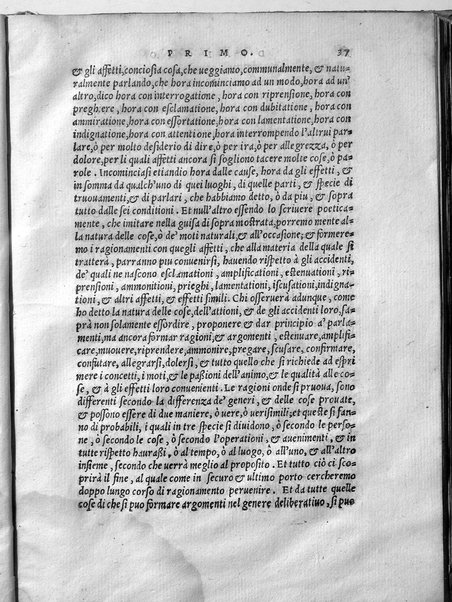 PRIMO. 37
& gli affetti, conciosia cosa, che ueggiamo, communalmente, & natu-
ralmente parlando, che hora incominciamo ad un modo, hora ad un'
altro, dico hora con interrogatione, hora con riprensione, hora con
preghere, hora con esclamatione, hora con dubitatione, hora con
ammiratione, hora con essortatione, hora con lamentatione, hora con
indignatione, hora con attentione, hora interrompendo l'altrui par
lare, ò per molto desiderio di dire, ò per ira, ò per allegrezza, ò per
dolore, per li quali affetti ancora si sogliono tacere molte cose, ò pa-
role. Incominciasi etiandio hora dalle cause, hora da gli effetti, &
in somma da qualch'uno di quei luoghi, di quelle parti, & spetie di
truouamenti, & di parlari, che habbiamo detto, ò da piu, & sopra
tutto dalle sei conditioni. Et null'altro essendo lo scriuere poetica-
mente, che imitare nella guisa di sopra mostrata, porremo mente al-
la natura delle cose, ò de' moti naturali, & all'occasione; & formere-
mo i ragionamenti con quegli affetti, che alla materia della quale si
tratterà, parranno piu conuenirsi, hauendo rispetto à gli accidenti,
de' quali ne nascono esclamationi, amplificationi, estenuationi, ri-
prensioni, ammonitioni, prieghi, lamentationi, iscusationi, indigna-
tioni, & altri affetti, & effetti simili. Chi osseruerà adunque, come
ho detto la natura delle cose, dell'attioni, & de gli accidenti loro, sa-
prà non solamente essordire, proponere & dar principio a' parla-
menti, ma ancora formar ragioni, & argomenti, estenuare, amplifi-
care, muouere, riprendere, ammonire, pregare, scusare, confirmare,
confutare, allegrarsi, dolersi, & tutto quello che si richiede ad espri
mere i concetti, i moti, & le paßioni dell'animo, & le qualità alle co-
se, & à gli effetti loro conuenienti. Le ragioni onde si pruoua, sono
differenti secondo la differenza de' generi, & delle cose prouate,
& possono essere di due maniere, ò uere, ò uerisimili; et queste si fan-
no di probabili, i quali in tre specie si diuidono, ò secondo le perso-
ne, ò secondo le cose, ò secondo l'operationi, & auenimenti, & in
tutte rispetto hauraßi, ò al tempo, ò al luogo, ò all'uno, & all'altro
insieme, secondo che uerrà meglio al proposito. Et tutto ciò ci sco-
prirà il fine, al quale come in securo & ultimo porto cercheremo
doppo lungo corso di ragionamento peruenire. Et da tutte quelle
cose di che si puo formare argomenti nel genere deliberatiuo, si puo